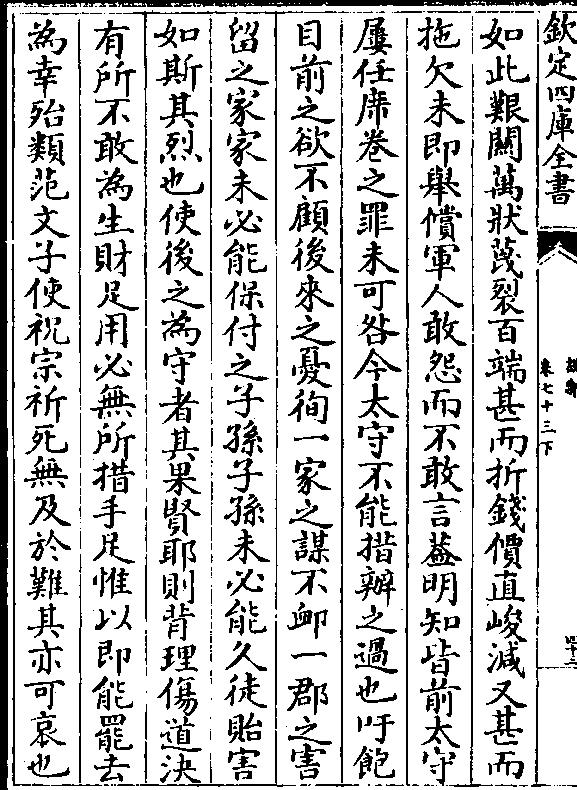 欽定四庫全書
卷七十三下
如此艱關萬狀蔑裂百端甚而折錢價直峻減又甚而
拖欠未即舉償軍人敢怨而不敢言葢明知皆前太守
屢任席卷之罪未可咎今太守不能措辦之過也吁飽
目前之欲不顧後來之憂徇一家之謀不䘏一郡之害
留之家家未必能保付之子孫子孫未必能久徒貽害
如斯其烈也使後之為守者其果賢耶則背理傷道決
有所不敢為生財足用必無所措手足惟以即能罷去
為幸殆類范文子使祝宗祈死無及於難其亦可哀也